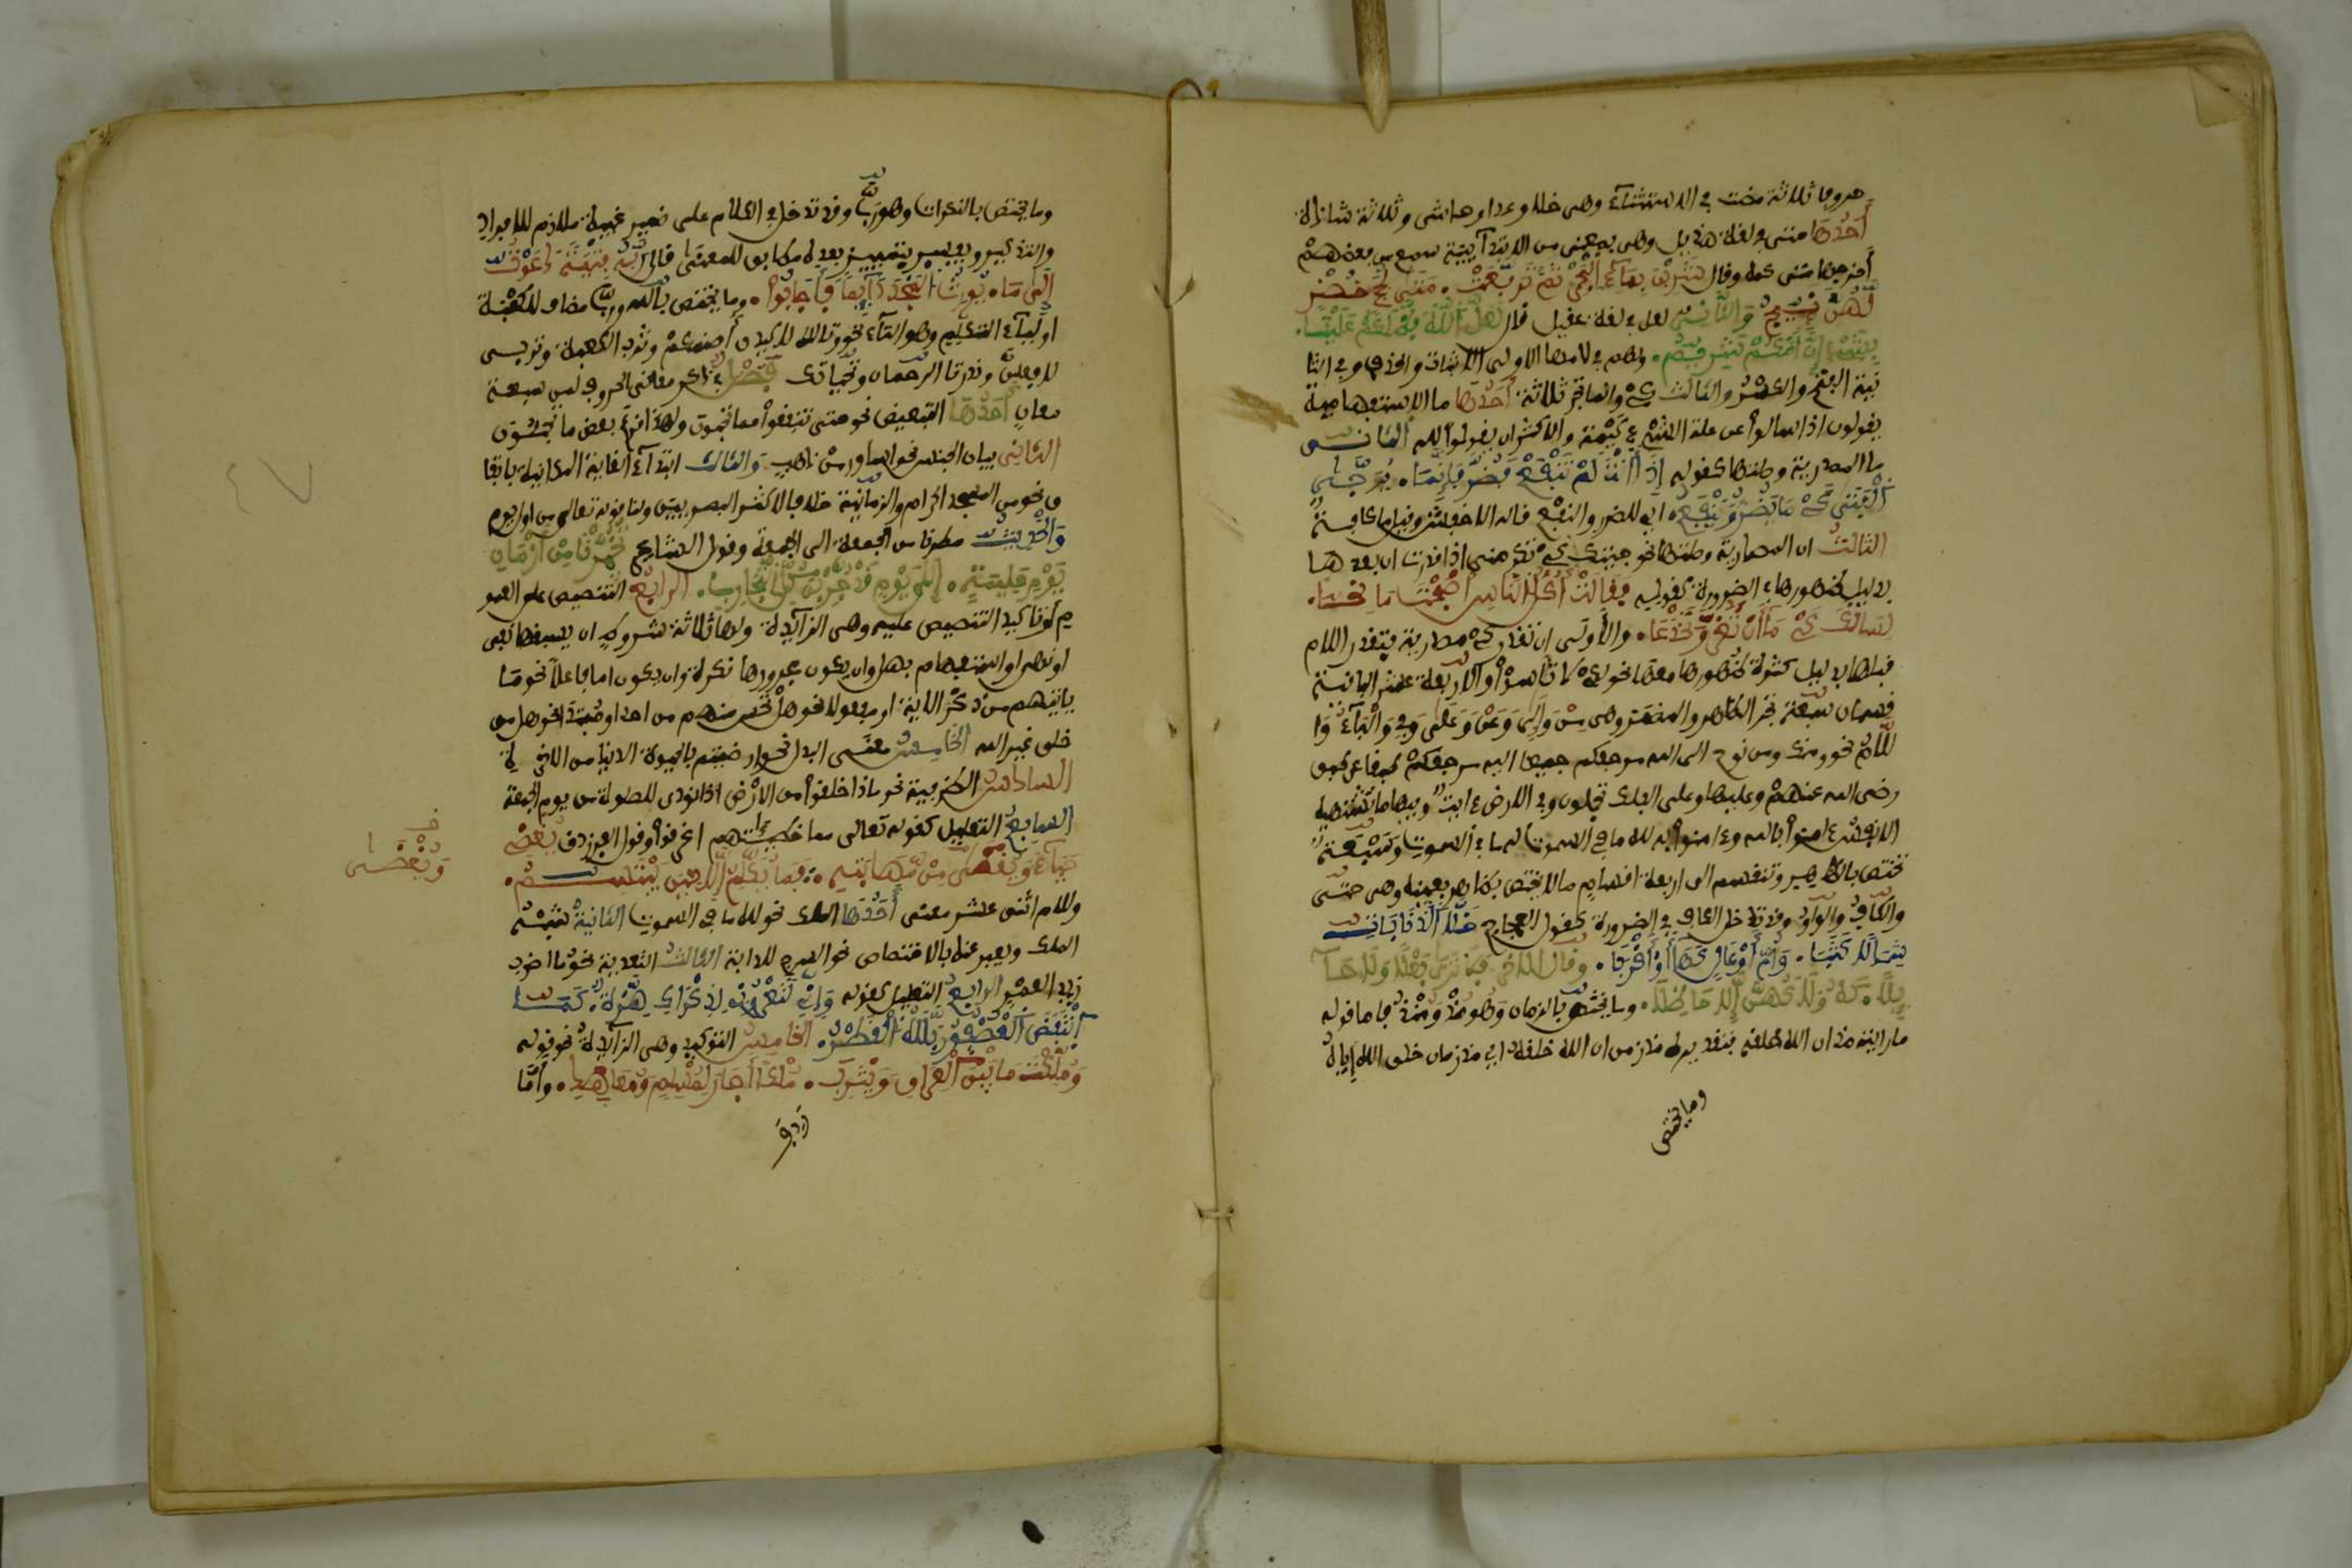 حروفا ثلاثة مضت في الاستثناء وهي خلا وعدا وحاشى وثلاثة شاذة
أحدها متى في لغة هذيل وهي بمعنى من الابتدآئية سمع من بعضهم
أخرجها متى كمه وقال شَرِبْنَ بِمَآءِ الْبَحْرِ ثُمَّ تَرَفَّعَتْ . مَتَى لُجَجٍ خُضْرٍ
لَهُنَّ نَئِيجُ والثاني لعل في لغة عقيل قال لَعَلَّ اللَّهِ فَضَّلَكُمْ عَلَيْنَا .
بِشَيْءٍ إِنَّ أُمَّكُمْ شَرِيمُ . ولهم في لامها الاولى الاثبات والحذف وفي الثا
نية الفتح والكسر والثالث كي وانما تجر ثلاثة أحدها ما الاستفهامية
يقولون اذا سالوا عن علة الشيء كيمه والاكثر ان يقولوا لمه الثاني
ما المصدرية وصلتها كقوله إِذَا أَنْتَ لَمْ تَنْفَعْ فَضُرَّ فَإِنَّمَا . يُرَجَّى
الْفَتَى كَيْ مَا يَضُرُّ وَيَنْفَعُ . اي للضر والنفع قاله الاخفش وقيل ما كافة
الثالث ان المصدرية وصلتها نحو جيتك كي تكرمني اذا قدرت ان بعدها
بدليل ظهورها في الضرورة كقوله فَقَالَتْ أَكُلَّ النَّاسِ أَصْبَحْتَ مَانِحًا .
لِسَانَكَ كَيْ مَا أَنْ تَغُرَّ وَتَخْدَعَا . والأولى ان تقدر كي مصدرية فتقدر اللام
قبلها بدليل كثرة ظهورها معها نحو لكي لا تأسوا والاربعة عشر الباقية
قسمان سبعة تجر الظاهر والمضمر وهي مِنْ وَإِلَى وَعَنْ وَعَلَى وَفِي وَالْبَآءُ وَا
للَّامُ نحو ومنك ومن نوح الى الله مرجعكم جميعا اليه مرجعكم طبقا عن طبق
رضي الله عنهم وعليها وعلى الفلك تحملون وفي الارض ءايت وفيها ما تشتهيه
الانفس ءامنوا بالله وءامنوا به لله ما في السموت له ما في السموت وسبعة
تختص بالظاهر وتنقسم الى اربعة اقسام ما لا يختص بظاهر بعينه وهي حتى
والكاف والواو وقد تدخل الكاف في الضرورة كقول العجاج خَلَّى الذَّنَابَاتِ
شِمَالًا كَثَبَا . وَأُمَّ أَوْعَالٍ كَهَا أَوْ أَقْرَبَا . وقال الاخر فَلَا تَرَى بَعْلًا وَلَا حَلَآ
ئِلًا . كَهُ وَلَا كَهُنَّ إِلَّا حَاظِلَا . وما يختص بالزمان وهو مذ ومنذ فاما قوله
ما رايته مذ ان الله خلقه فتقديره مذ زمن ان الله خلقه اي مذ زمان خلق الله إياه
وما يختص
وما يختص بالنكرات وهو رب وقد تدخل في الكلام على ضمير غيبة ملازم للافراد
والتذكير ويفسر بتمييز بعده مطابق للمعنى قال رُبَّهُ فِتْيَةً دَعَوْتُ
إِلَى مَا . يُورِثُ الْمَجْدَ دَآئِمًا فَأَجَابُوا . وما يختص بالله ورب مضاف للكعبة
او ليآء المتكلم وهو التآء نحو وتالله لاكيدن أصنمكم وترب الكعبة وتربي
لافعلن وندر تالرحمان وتحياتك فَصْل في ذكر معاني الحروف لمن سبعة
معان أحدها التبعيض نحو حتى تنفقوا مما تحبون ولهذا قرئ بعض ما تحبون
الثاني بيان الجنس نحو اساور من ذهب والثالث ابتدآء الغاية المكانية باتفا
ق نحو من المسجد الحرام والزمانية خلافا لاكثر البصريين ولنا قوله تعالى من اول يوم
والحديث مطرنا من الجمعة الى الجمعة وقول الشاعر تُخُيِّرْنَ مِنْ أَزْمَانِ
يَوْمِ حَلِيمَةٍ . إِلَى الْيَوْمِ قَدْ جُرِّبْنَ كُلَّ التَّجَارِبِ . الرابع التنصيص على العمو
م أو تاكيد التنصيص عليه وهي الزآئدة ولها ثلاثة شروط ان يسبقها نفي
او نهي او استفهام بهل وان يكون مجرورها نكرة وان يكون اما فاعلا نحو ما
ياتيهم من ذكر الاية او مفعولا نحو هل تحس منهم من احد او مبتدأ نحو هل من
خلق غير الله الخامس معنى البدل نحو ارضيتم بالحيوة الدنيا من الاخرة
السادس الظرفية نحو ماذا خلقوا من الارض اذا نودي للصلوة من يوم الجمعة
السابع التعليل كقوله تعالى مما خطيئتهم اغرقوا وقول الفرزدق يُغْضِي
حَيَآءً وَيُغْضَى مِنْ مَهَابَتِهِ . فَمَا يُكَلَّمُ إِلَّا حِينَ يَبْتَسِمُ .
وللام اثنى عشر معنى أحدها الملك نحو لله ما في السموت الثانية شبه
الملك ويعبر عنه بالاختصاص نحو السرج للدابة الثالث التعدية نحو ما اضرب
زيد العمرو الرابع التعليل كقوله وَإِنِّي لَتَعْرُونِي لِذِكْرَاكِ هِزَّةٌ . كَمَا
انْتَفَضَ الْعُصْفُورُ بَلَّلَهُ الْقَطْرُ . الخامس التوكيد وهي الزآئدة نحو قوله
وَمَلَكْتَ مَا بَيْنَ الْعِرَاقِ وَيَثْرِبَ . مُلْكًا أَجَارَ لِمُسْلِمٍ وَمُعَاهِدِ . وأما
ردف
وَيُغْضَى
٤٧